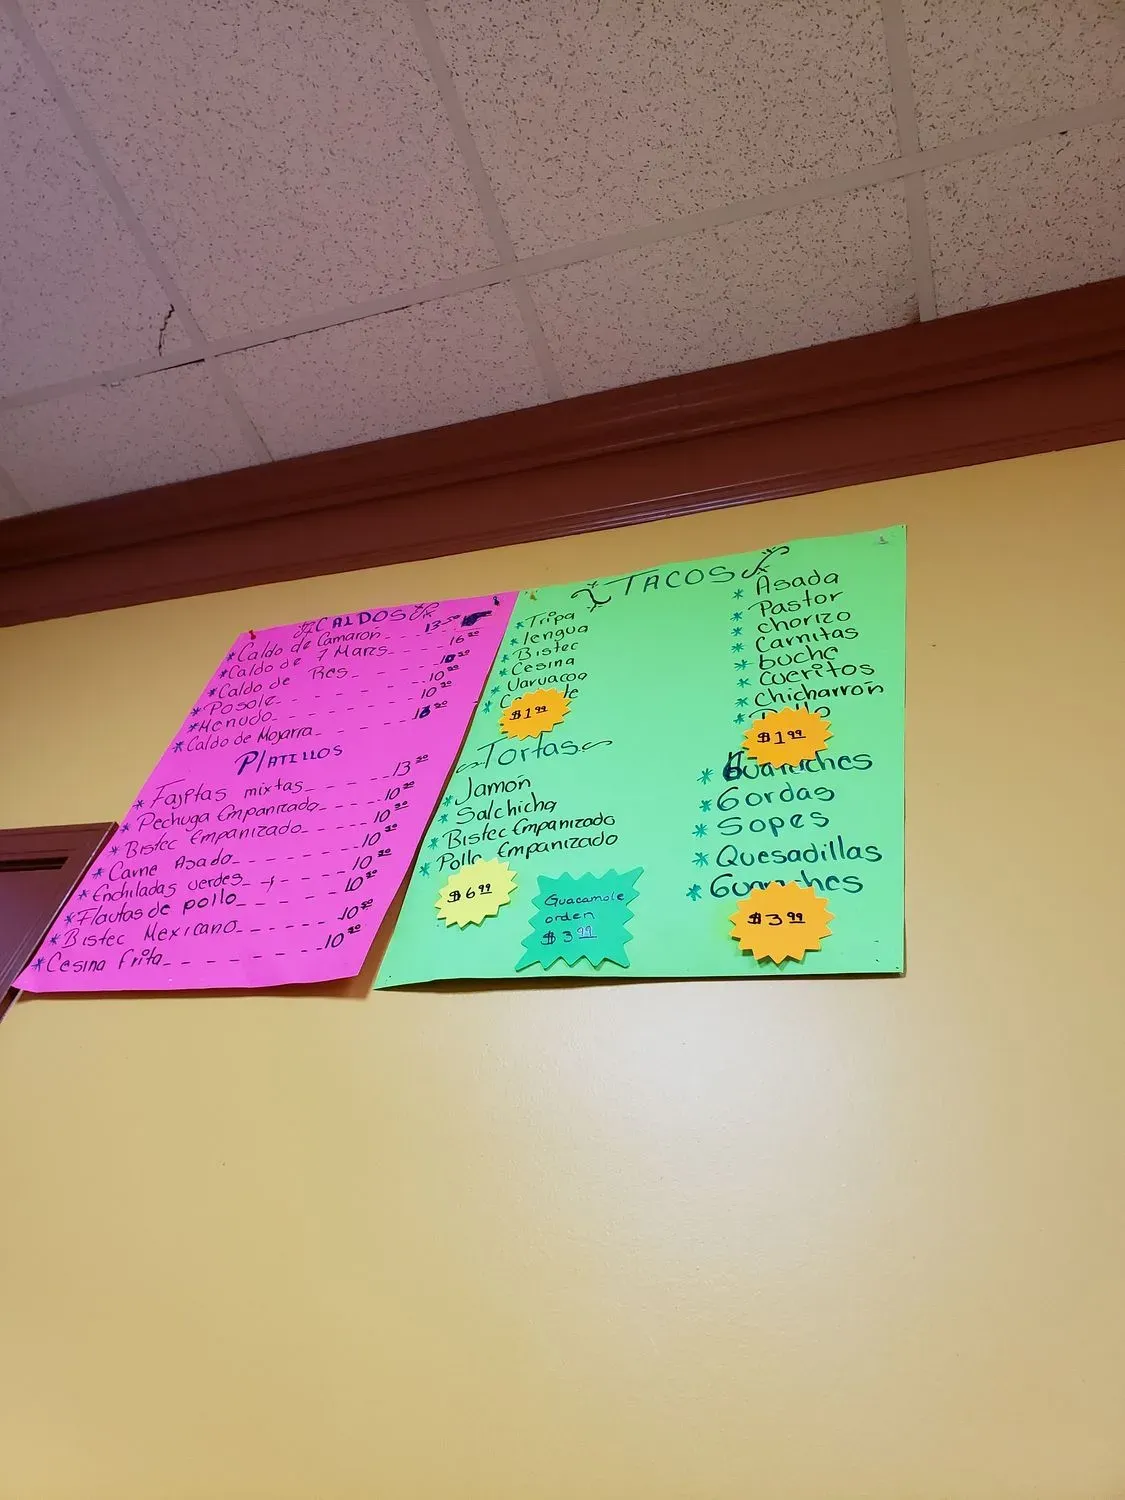 CALDOS
*Caldo de Camaron 13.50
*Caldo de 7 Mares 16.00
*Caldo de Res 10.00
*Posole 10.00
*Menudo 10.00
*Caldo de Mojarra 13.00
PlATILLOS
*Fajitas mixtas 13.00
*Pechuga Empanizado 10.00
*Bistec Empanizado 10.00
*Carne Asado 10.00
*Enchiladas verdes 10.00
*Flautas de pollo 10.00
*Bistec Mexicano 10.00
*Cesina frita 10.00
TACOS
*Tripa
*lengua
*Bistec
*Cesina
*Varvacoa
$1 99
*Asada
*Pastor
*chorizo
*Carnitas
*buche
*Cueritos
*Chicharron
$1 99
Tortas
*Jamon
*Salchicha
*Bistec Empanizado
*Pollo Empanizado
$6 99
Guacamole
orden
$3 99
*Guaraches
*Gordas
*Sopes
*Quesadillas
*Guaraches
$3 99